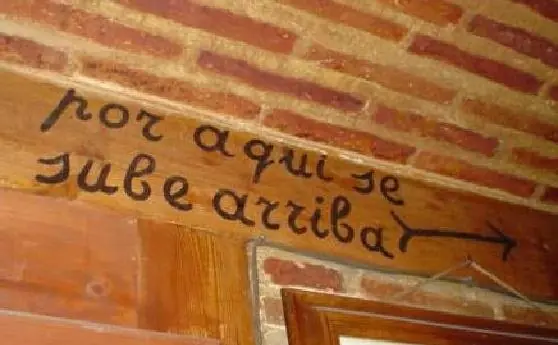 por aqui se
sube arriba